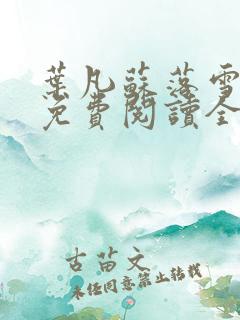 葉凡蘇落雪
免費閱讀全
古苗文
未经同意禁止转载